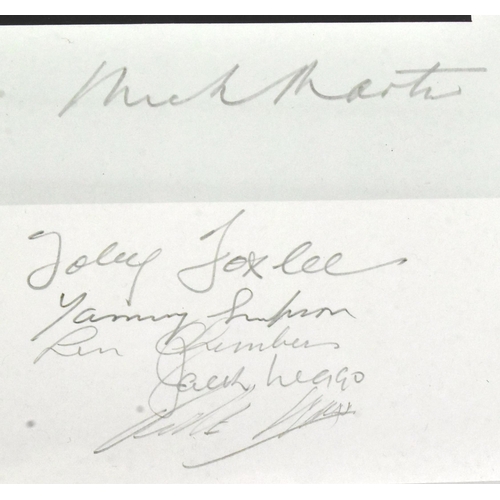 Mick Martin
Toby Foxlee
Tammy Simpson
Ken Chambers
Jack Leggo